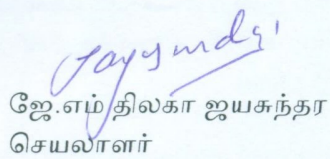 ஜே.எம் திலகா ஜயசுந்தர
செயலாளர்